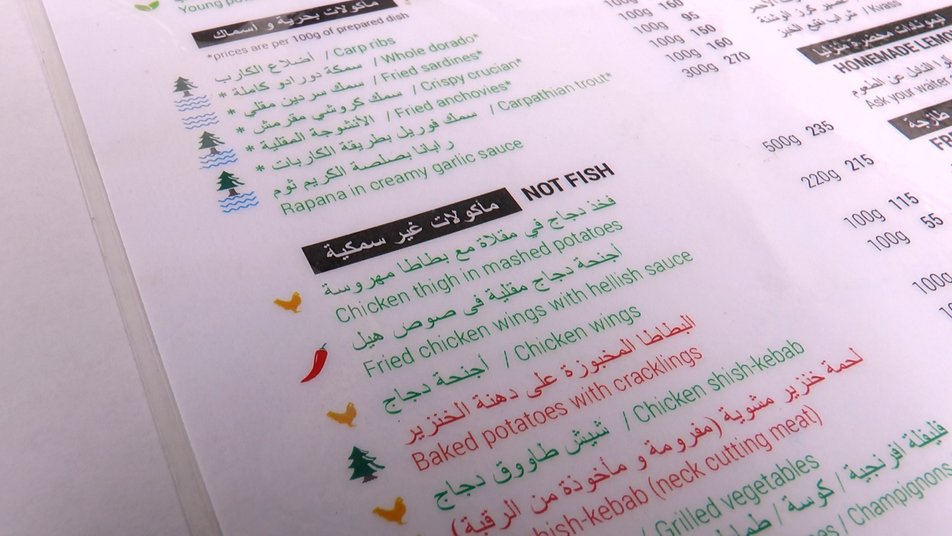 Young pota
مأكولات بحرية و أسماك
*prices are per 100g of prepared dish
أضلاع الكارب / Carp ribs
* سمكة دورادو كاملة / Whole dorado*
* سمك سردين مقلي / Fried sardines*
* سمك كروشي مقرمش / Crispy crucian*
* الأنشوجة المقلية / Fried anchovies*
* سمك فوريل بطريقة الكاربات / Carpathian trout*
رابانا بصلصة الكريم ثوم
Rapana in creamy garlic sauce
100g 160
100g 95
100g 160
100g 150
100g 160
300g 270
مأكولات غير سمكية NOT FISH
فخذ دجاج في مقلاة مع بطاطا مهروسة
Chicken thigh in mashed potatoes
500g 235
أجنحة دجاج مقلية في صوص هيل
Fried chicken wings with hellish sauce
220g 215
أجنحة دجاج / Chicken wings
100g 115
البطاطا المخبوزة على دهنة الخنزير
Baked potatoes with cracklings
100g 55
شيش طاووق دجاج / Chicken shish-kebab
100g
لحمة خنزير مشوية (مفرومة و مأخوذة من الرقبة)
shish-kebab (neck cutting meat)
/ Grilled vegetables
فليفلة افرنجية / كوسة /
/ Champignons
/ Kvass
HOMEMADE LEMO
Ask your waiter
طازجة
FR